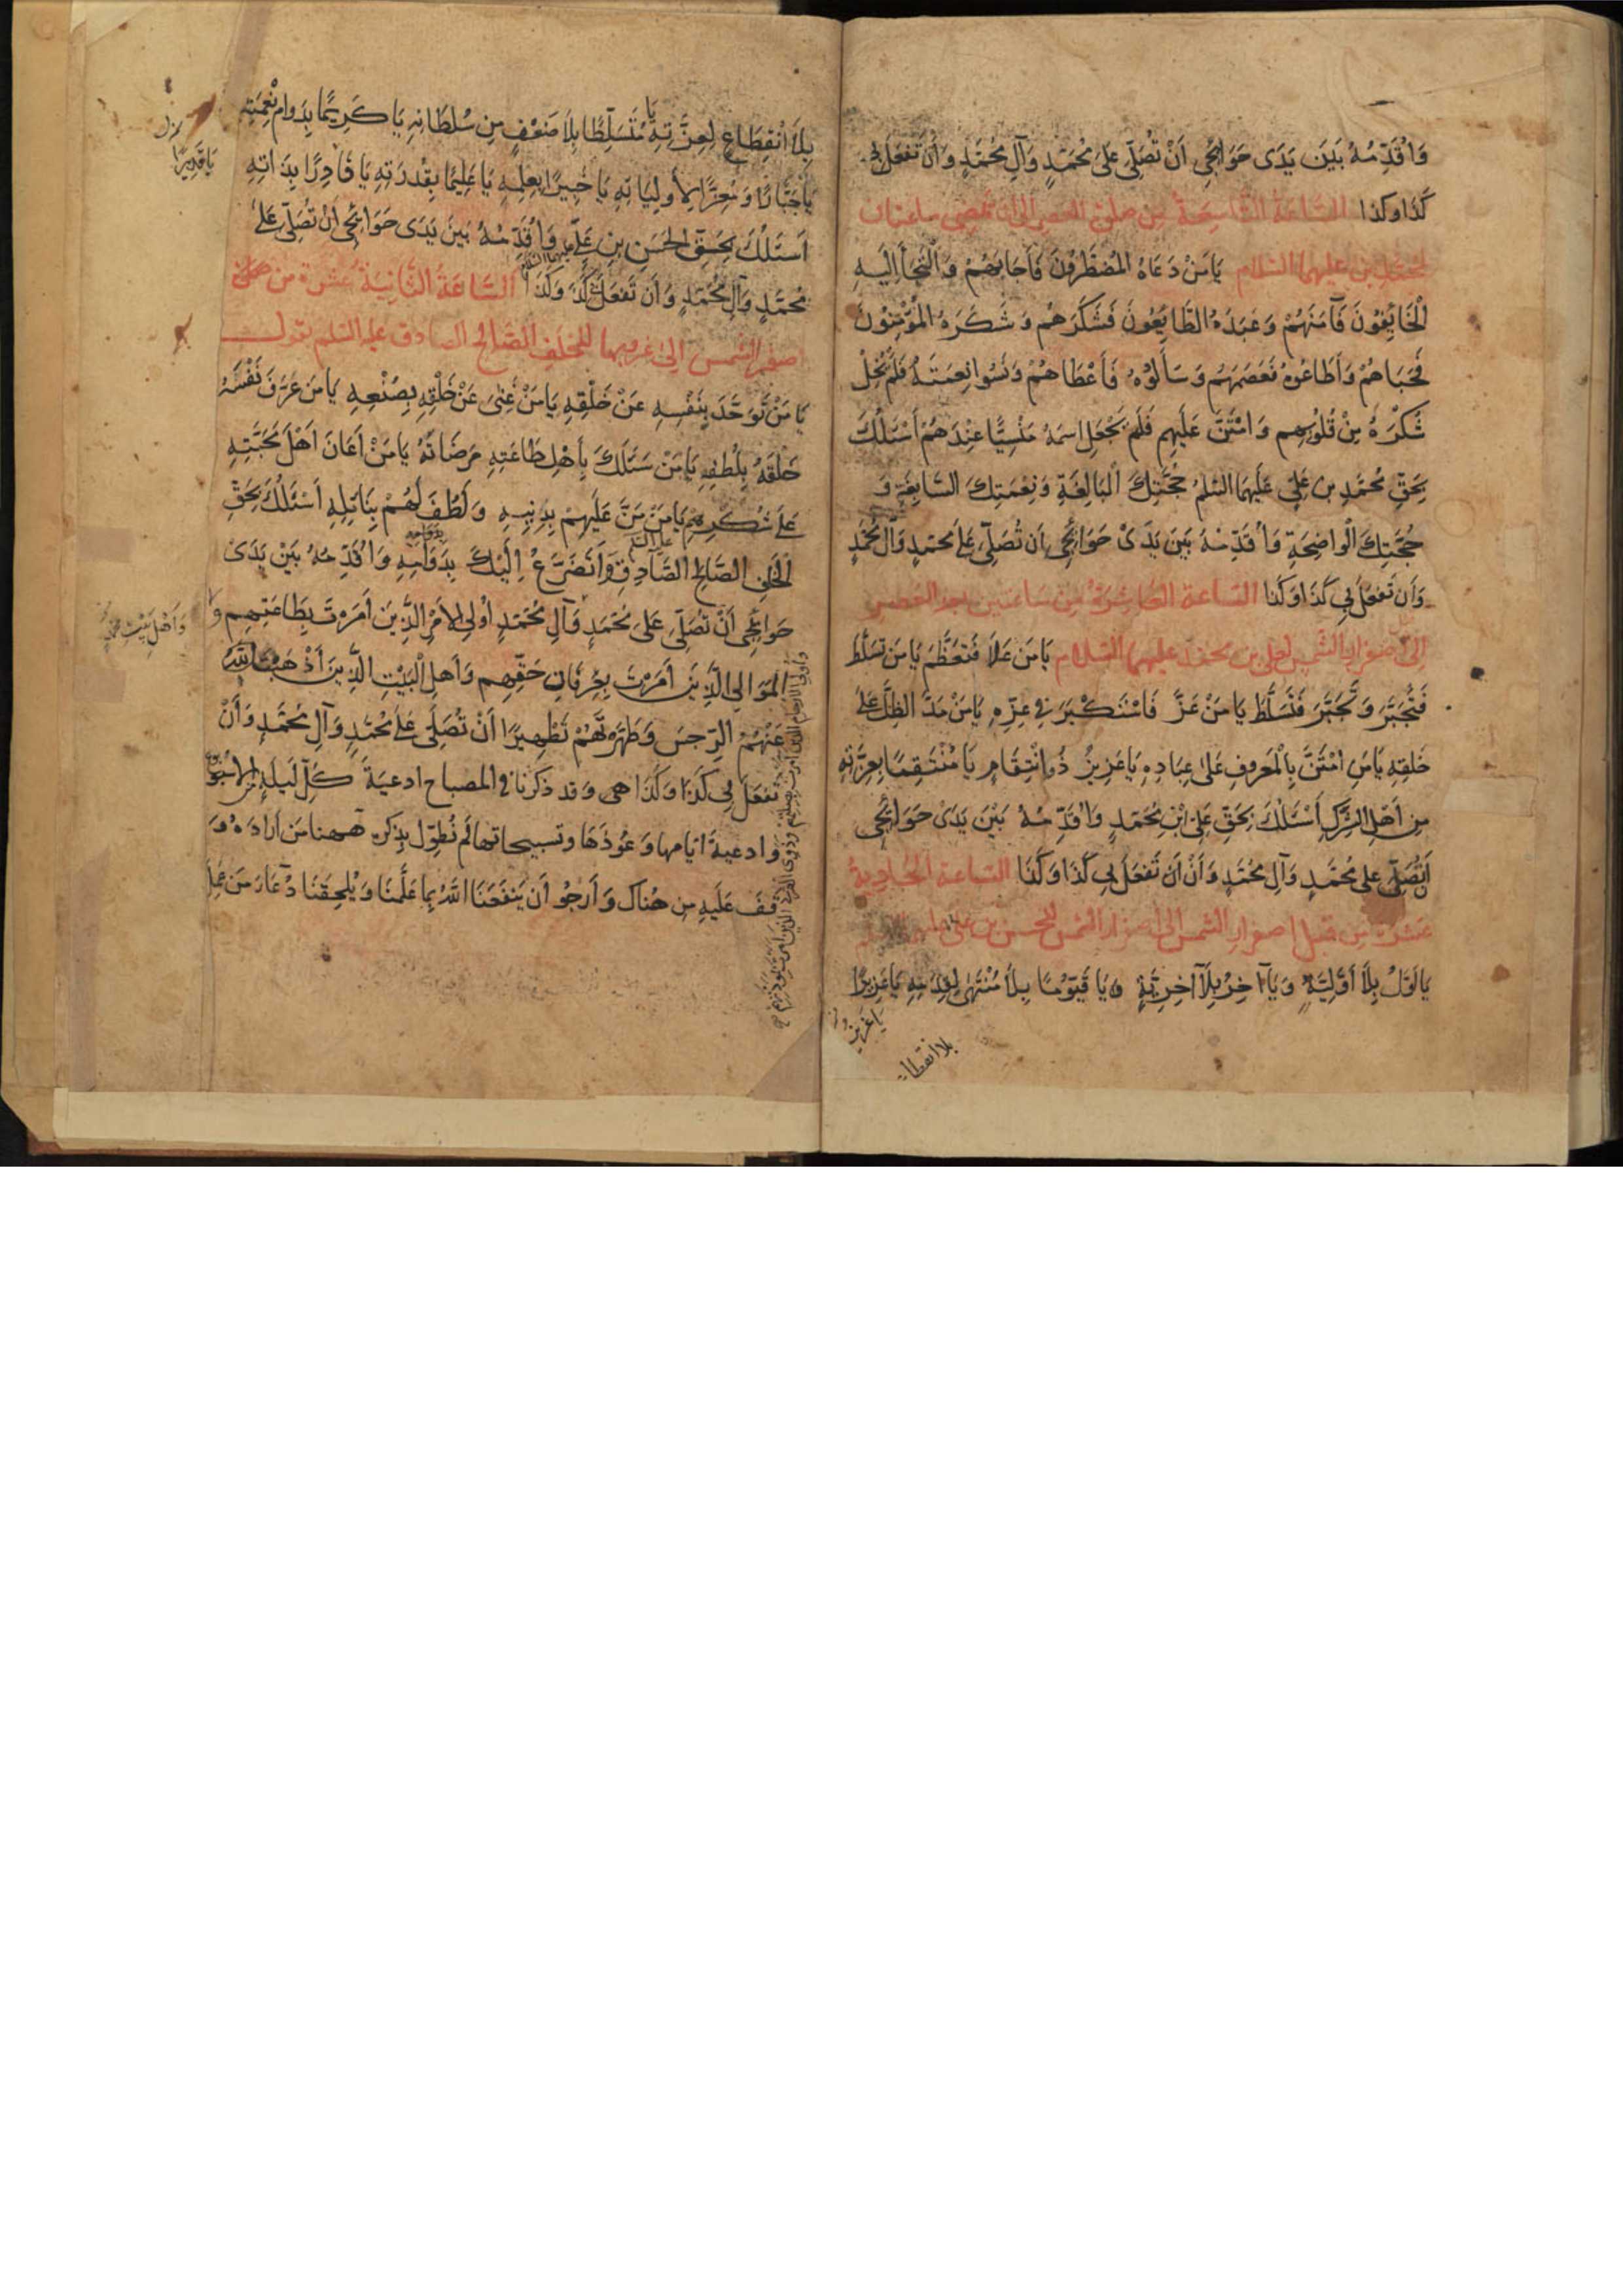 وَاُقَدِّمُهُ بَيْنَ يَدَى حَوَائِجِى اَنْ تُصَلِّىَ عَلَى مُحَمَّدٍ وَآلِ مُحَمَّدٍ وَاَنْ تَفْعَلَ بِى
كَذَا وَكَذَا السَّاعَة التَّاسِعَةُ مِن صلوة العصر الى ان تمضى ساعتان
لمحمد بن عليهما السّلام يَا مَنْ دَعَاهُ الْمُضْطَرُّونَ فَاَجَابَهُمْ وَالْتَجَأَ اِلَيْهِ
الْخَائِفُونَ فَآمَنَهُمْ وَعَبَدَهُ الطَّائِعُونَ فَشَكَرَهُمْ وَشَكَرَهُ الْمُؤْمِنُونَ
فَحَبَاهُمْ وَاَطَاعُوهُ فَعَصَمَهُمْ وَسَأَلُوْهُ فَاَعْطَاهُمْ وَنَسُوا نِعْمَتَهُ فَلَمْ يُخْلِ
شُكْرَهُ مِنْ قُلُوبِهِمْ وَامْتَنَّ عَلَيْهِمْ فَلَمْ يَجْعَلِ اسْمَهُ مَنْسِيًّا عِنْدَهُمْ اَسْئَلُكَ
بِحَقِّ مُحَمَّدِ بْنِ عَلِىٍّ عَلَيْهِمَا السّلمُ حُجَّتِكَ الْبَالِغَةِ وَنِعْمَتِكَ السَّابِغَةِ وَ
حُجَّتِكَ الْوَاضِحَةِ وَاُقَدِّمُهُ بَيْنَ يَدَىْ حَوَائِجِى اَنْ تُصَلِّىَ عَلَى مُحَمَّدٍ وَآلِ مُحَمَّدٍ
وَاَنْ تَفْعَلَ بِى كَذَا وَكَذَا السّاعة العَاشرةُ مِن ساعتين بعد العَصر
اِلى اصفرار الشَّمس لعلى بن محمد عليهما السّلام يَا مَنْ عَلَا فَتَعَظَّمَ يَا مَنْ تَسَلَّطَ
فَتَجَبَّرَ وَتَجَبَّرَ فَتَسَلَّطَ يَا مَنْ عَزَّ فَاسْتَكْبَرَ فِى عِزِّهِ يَا مَنْ مَدَّ الظِّلَّ عَلَى
خَلْقِهِ يَا مَنِ امْتَنَّ بِالْمَعْرُوفِ عَلَى عِبَادِهِ يَا عَزِيزُ ذُو انْتِقَامٍ يَا مُنْتَقِمًا بِعِزَّتِهِ
مِنْ اَهْلِ الشِّرْكِ اَسْئَلُكَ بِحَقِّ عَلِىِّ ابْنِ مُحَمَّدٍ وَاُقَدِّمُهُ بَيْنَ يَدَىْ حَوَائِجِى
اَنْ تُصَلِّىَ عَلَى مُحَمَّدٍ وَآلِ مُحَمَّدٍ وَاَنْ اَنْ تَفْعَلَ بِى كَذَا وَكَذَا السّاعة الحادية
عشرة من قبل اصفرار الشمس الى اصفرار الشمس للحسن بن على
يَا اَوَّلُ بِلَا اَوَّلِيَّةٍ وَيَا آخِرُ بِلَا آخِرِيَّةٍ وَيَا قَيُّومًا بِلَا مُنْتَهٰى لِقِدَمِهِ يَا عَزِيزًا
يا عزيز
بلا انقطاع
بِلَا انْقِطَاعٍ لِعِزَّتِهِ يَا مُتَسَلِّطًا بِلَا ضَعْفٍ مِنْ سُلْطَانِهِ يَا كَرِيمًا بِدَوَامِ نِعْمَتِهِ
يَا قَدِيرًا
يَا جَبَّارًا وَمُعِزًّا لِاَوْلِيَائِهِ يَا خَبِيرًا بِعِلْمِهِ يَا عَلِيمًا بِقُدْرَتِهِ يَا قَادِرًا بِذَاتِهِ
اَسْئَلُكَ بِحَقِّ الْحَسَنِ بْنِ عَلِىٍّ عليهما السّلام وَاُقَدِّمُهُ بَيْنَ يَدَى حَوَائِجِى اَنْ تُصَلِّىَ عَلَى
مُحَمَّدٍ وَآلِ مُحَمَّدٍ وَاَنْ تَفْعَلَ بِى كَذَا وَكَذَا السّاعَةُ الثَّانِيَةُ عَشَرة من
اصفرار الشمس الى غروبها للخلف الصّالح الصادق عليه السّلم تقول
يَا مَنْ تَوَحَّدَ بِنَفْسِهِ عَنْ خَلْقِهِ يَا مَنْ غَنِىَ عَنْ خَلْقِهِ بِصُنْعِهِ يَا مَنْ عَرَّفَ نَفْسَهُ
خَلْقَهُ بِلُطْفِهِ يَا مَنْ سَلَكَ بِاَهْلِ طَاعَتِهِ مَرْضَاتَهُ يَا مَنْ اَعَانَ اَهْلَ مَحَبَّتِهِ
عَلَى شُكْرِهِ يَا مَنْ مَنَّ عَلَيْهِمْ بِدِينِهِ وَلَطُفَ لَهُمْ بِنَائِلِهِ اَسْئَلُكَ بِحَقِّ
الْخَلَفِ الصَّالِحِ الصَّادِقِ وَاَتَضَرَّعُ اِلَيْكَ بِهِ وَاُقَدِّمُهُ بَيْنَ يَدَىْ
حَوَائِجِى اَنْ تُصَلِّىَ عَلَى مُحَمَّدٍ وَآلِ مُحَمَّدٍ اُولِى الْاَمْرِ الَّذِينَ اَمَرْتَ بِطَاعَتِهِمْ وَ
وَاَهْلِ بَيْتِ مُحَمَّدٍ
الْمَوَالِى الَّذِينَ اَمَرْتَ بِعِرْفَانِ حَقِّهِمْ وَاَهْلِ الْبَيْتِ الَّذِينَ اَذْهَبْتَ
عَنْهُمُ الرِّجْسَ وَطَهَّرْتَهُمْ تَطْهِيرًا اَنْ تُصَلِّىَ عَلَى مُحَمَّدٍ وَآلِ مُحَمَّدٍ وَاَنْ
تَفْعَلَ بِى كَذَا وَكَذَا وقد ذكرنا فى المصباح ادعيَةَ كلّ ليلةٍ الاسبوع
وادعيةَ ايّامها وَعُوذَها وتسبيحاتها لم نُطوّل بذكره ههنا مَن ارادَهُ وَ
قَفَ عَلَيهِ مِن هُناك وَاَرجُو اَن يَنفَعَنَا اللهُ بِمَا عَلَّمَنَا وَيُلحِقَنا دُعَاءَ مَن عَمِلَ